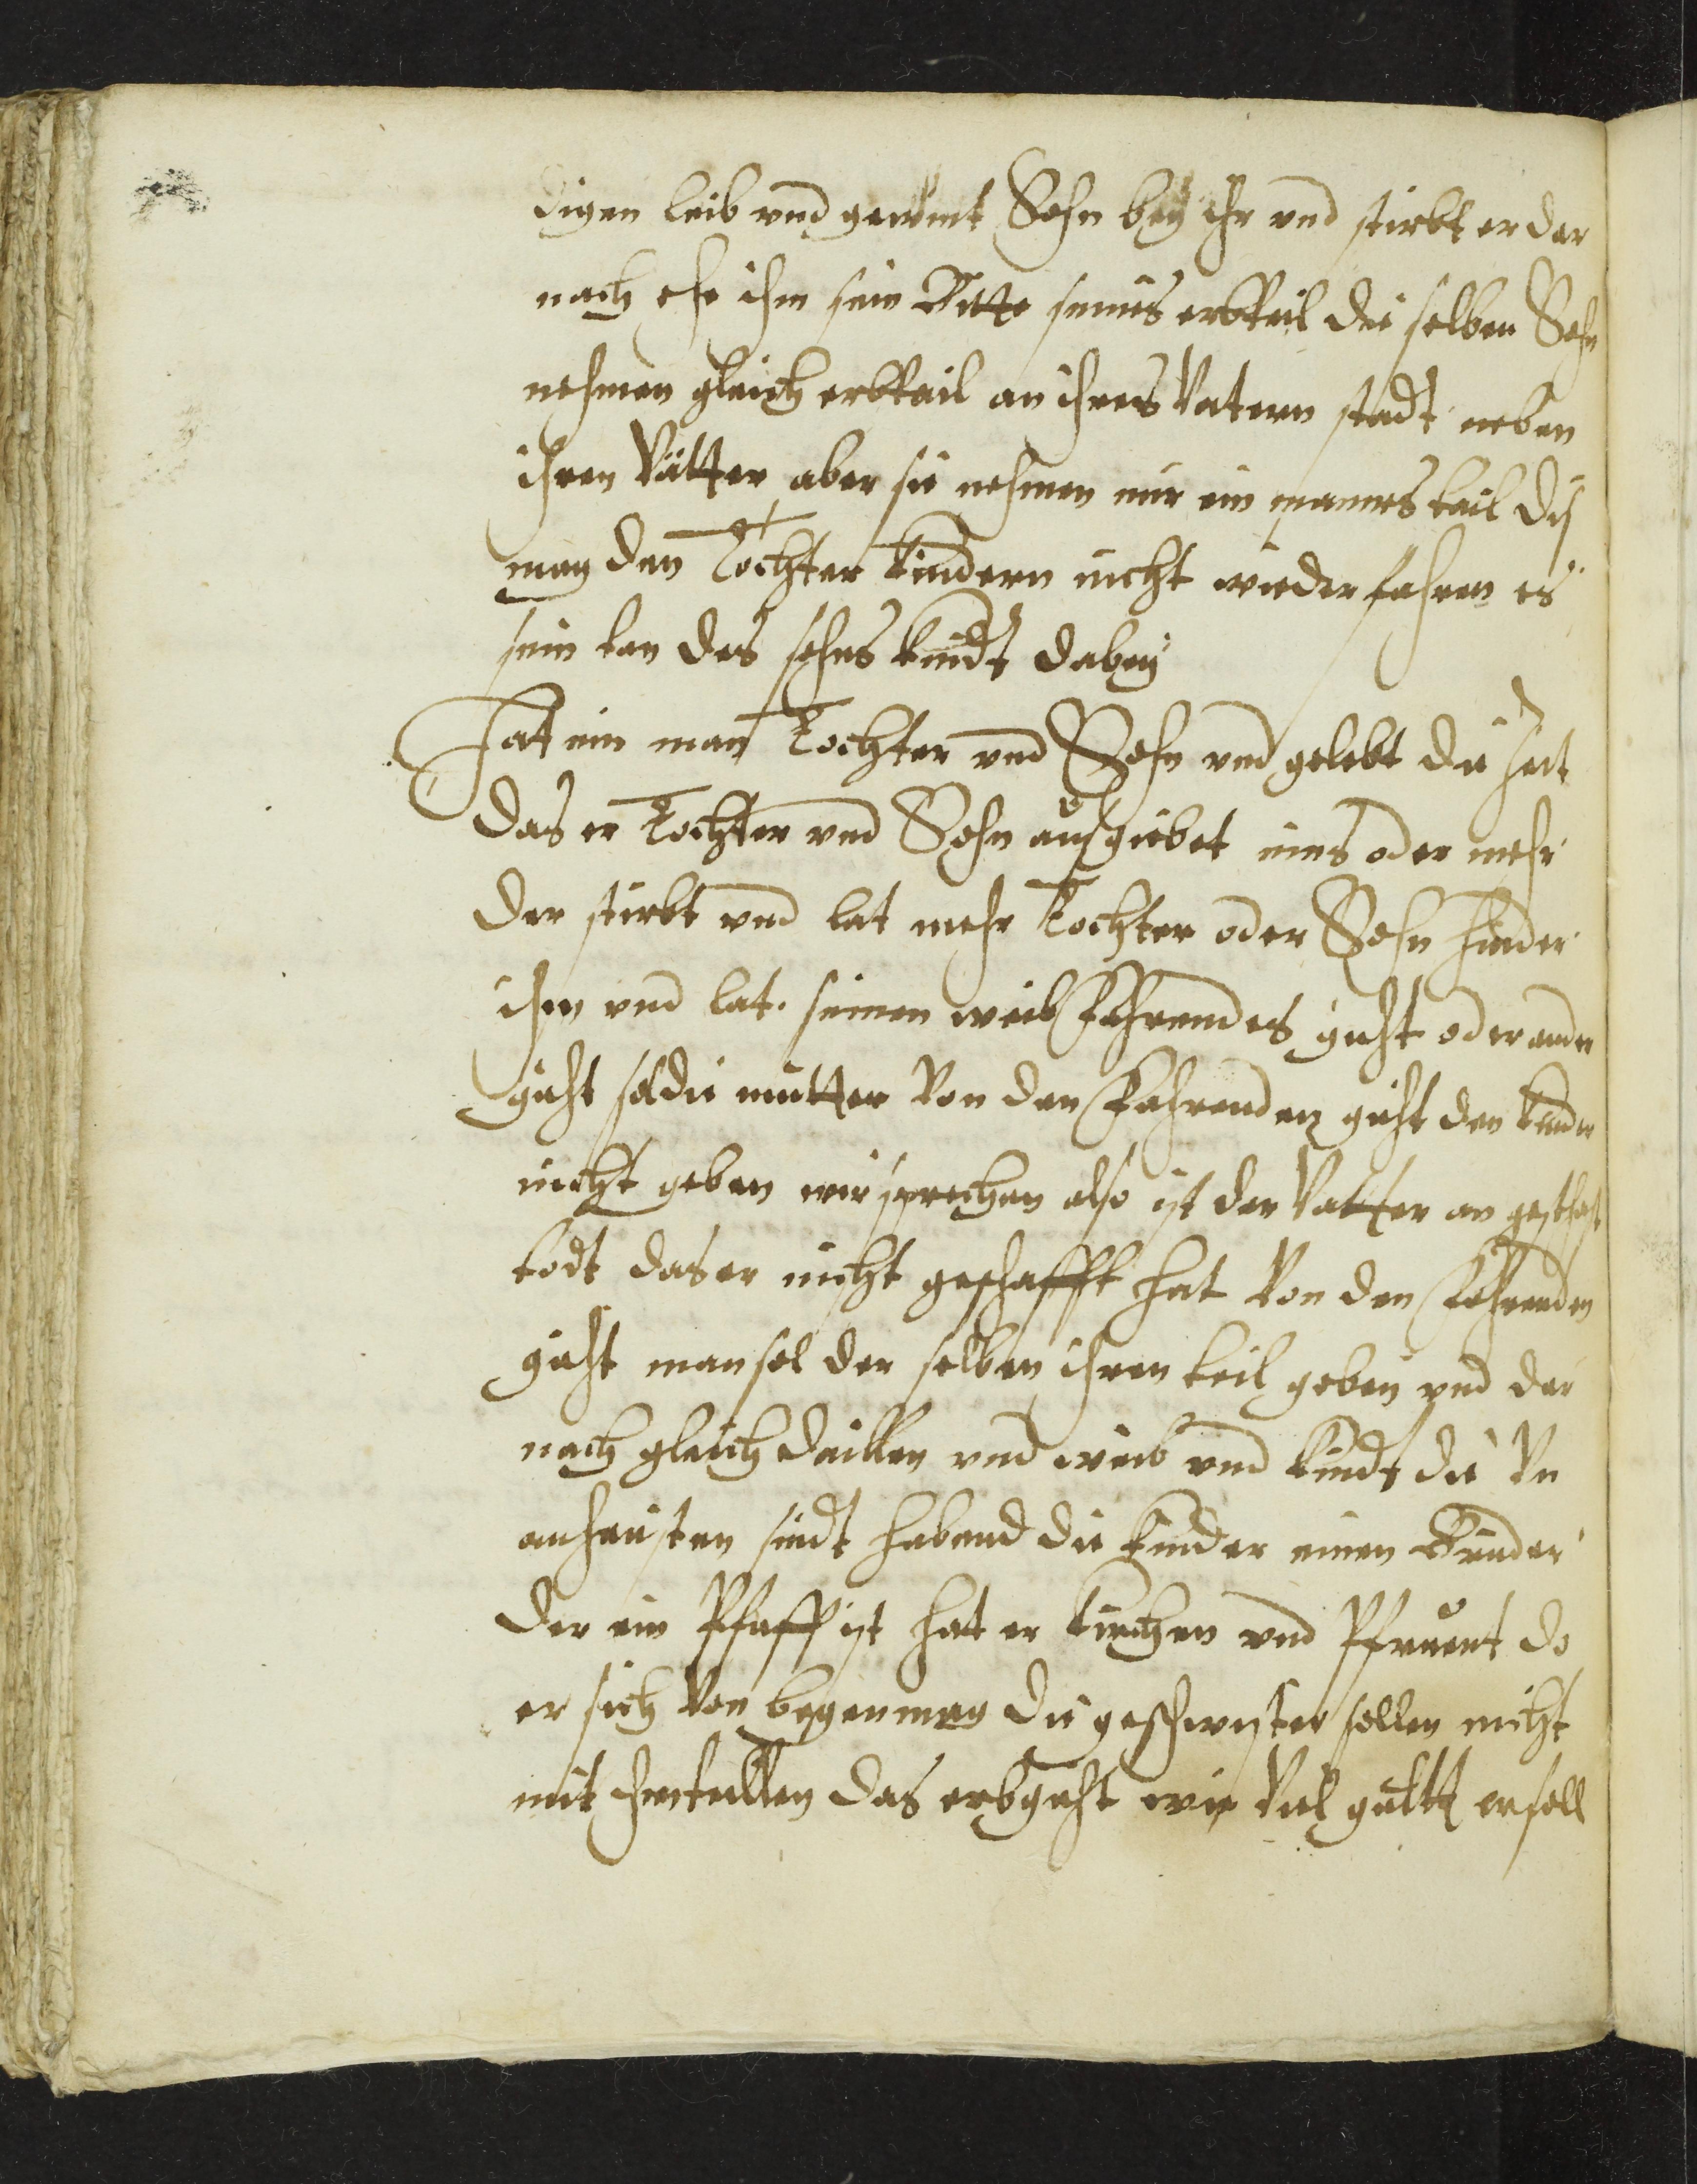 digen leib vnd gewint Sohn bey ihr vnd stirbt er dar
nach ehe ihm sein Vatte seines erbteil die selben Sohn
nehmen gleich erbteil an ihres Vatern stadt neben
ihren Vätter aber sie nehmen nur ein mannes tail diß
mag den Tochter kindern nicht wieder fahren es
sein dan des sohns kindt dabey
Hat ein man Tochter vnd Sohn vnd gelebt die Zeit
das er Tochter vnd Sohn außgiebet eins oder mehr
der stirbt vnd lat mehr Tochter oder Sohn hinder
ihm vnd lat seinen weib Fahrendes guht oder ander
guht sol die mutter Von den Fahrenden guht den kinder
nicht geben wir sprechen also ist der Vatter an geschefft
todt das er nicht geschafft hat Von den Fahrenden
guht man sol der selben ihren teil geben vnd dar
nach gleich daillen vnd weib vnd kindt die Vn
anheusten sindt habend die kinder einen Bruder
der ein Pfaff ist hat er kirchen vnd Pfruent do
er sich Von begen mag die geschwister sollen nicht
mit ihm teillen das erbguht wie Viel gultt er soll